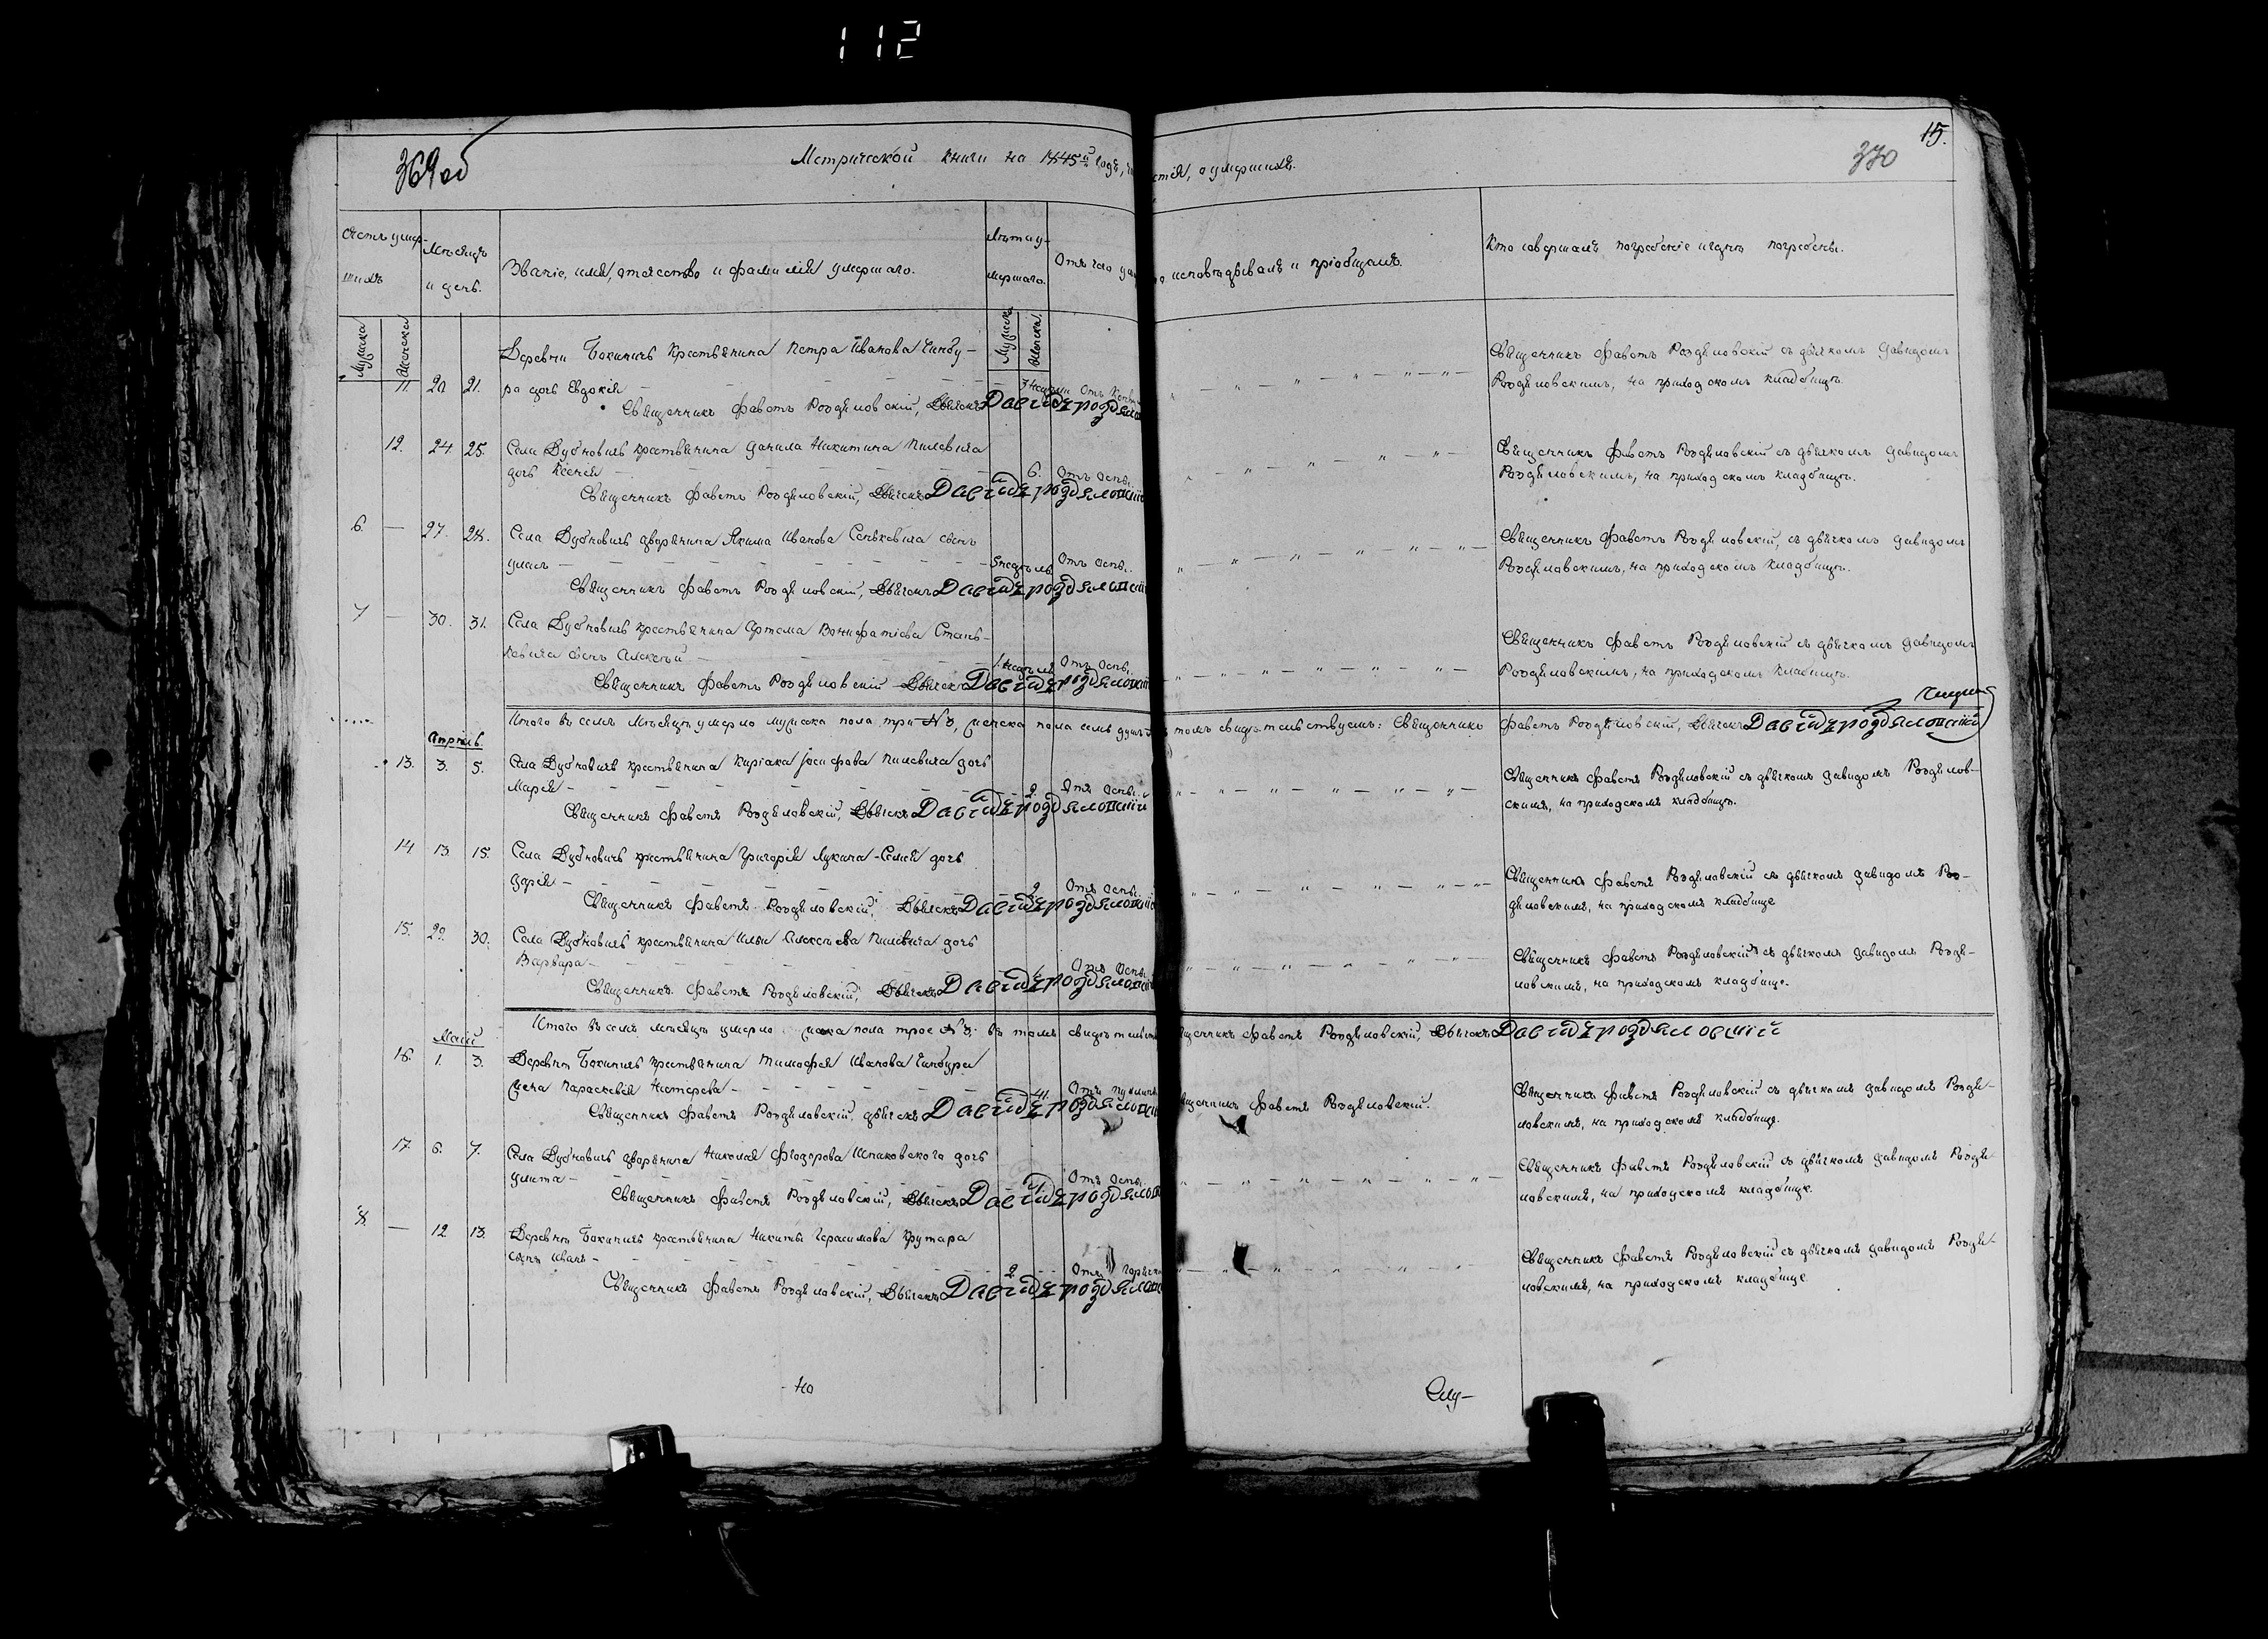 112
369 об
15.
330
Метрической книги на 1845й годъ, о умершихъ.
Счетъ умер-
шихъ
Мужеска
Женска
Мѣсяцъ
и день.
Званіе, имя, отечество и фамилія умершаго.
Лѣта у-
мершаго.
Мужеска
Женска
Отъ чего
исповѣдывалъ и пріобщалъ.
Кто совершалъ погребеніе и гдѣ погребены.
11 20 21. Деревни Бокиничъ крестьянина Петра Иванова Чинбу-
ра дочь Евдокія 3 недѣли Отъ
Священникъ Фавстъ Роздяловскій, Дьячекъ Давидъ Роздяловскій
Священникъ Фавстъ Роздяловскій съ дьячкомъ Давидомъ
Роздяловскимъ, на приходскомъ кладбищѣ.
12. 24. 25. Села Дубновичъ крестьянина Данила Никитина Пилевича
дочь Ксенія 6. Отъ Оспы.
Священникъ Фавстъ Роздяловскій, Дьячекъ Давидъ Роздяловскій
Священникъ Фавстъ Роздяловскій съ дьячкомъ Давидомъ
Роздяловскимъ, на приходскомъ кладбищѣ.
6. — 27. 28. Села Дубновичъ дворянина Якима Иванова Сеньковича сынъ
5 недѣль Отъ Оспы.
Священникъ Фавстъ Роздяловскій, Дьячекъ Давидъ Роздяловскій
Священникъ Фавстъ Роздяловскій, съ дьячкомъ Давидомъ
Роздяловскимъ, на приходскомъ кладбищѣ.
7 — 30. 31. Села Дубновичъ крестьянина Артема Вонифатіева Стань-
кевича сынъ Алексѣй 1. недѣля Отъ Оспы.
Священникъ Фавстъ Роздяловскій Дьячекъ Давидъ Роздяловскій
Священникъ Фавстъ Роздяловскій съ дьячкомъ Давидомъ
Роздяловскимъ, на приходскомъ кладбищѣ.
Итого въ семъ мѣсяцѣ умерло мужеска пола три № 3, женска пола семь душъ томъ свидѣтельствуемъ: Священникъ Фавстъ Роздяловскій, Дьячекъ Давидъ Роздяловскій
Апрѣль
13. 3. 5. Села Дубновичъ крестьянина Киріака Іосифова Пилевича дочь
Марія — 2 Отъ Оспы.
Священникъ Фавстъ Роздяловскій, Дьячекъ Давидъ Роздяловскій
Священникъ Фавстъ Роздяловскій съ дьячкомъ Давидомъ Роздялов-
скимъ, на приходскомъ кладбищѣ.
14 13. 15. Села Дубновичъ крестьянина Григорія Лукина дочь
Дарія — 2 Отъ Оспы.
Священникъ Фавстъ Роздяловскій, Дьячекъ Давидъ Роздяловскій
Священникъ Фавстъ Роздяловскій съ дьячкомъ Давидомъ Роз-
дяловскимъ, на приходскомъ кладбище
15. 29. 30. Села Дубновичъ крестьянина Ильи Алексѣева Пилевича дочь
Варвара — Отъ Оспы.
Священникъ Фавстъ Роздяловскій, Дьячекъ Давидъ Роздяловскій
Священникъ Фавстъ Роздяловскій съ дьячкомъ Давидомъ Роздя-
ловскимъ, на приходскомъ кладбище.
Итого въ семъ мѣсяцѣ умерло женска пола трое № 3. въ томъ Священникъ Фавстъ Роздяловскій, Дьячекъ Давидъ Роздяловскій
Маій
16. 1. 3. Деревни Бокиничъ крестьянина Тимофея Иванова Чинбура
жена Параскевія Нестерова — 41. Отъ
Священникъ Фавстъ Роздяловскій, дьячекъ Давидъ Роздяловскій
Священникъ Фавстъ Роздяловскій.
Священникъ Фавстъ Роздяловскій съ дьячкомъ Давидомъ Роздя-
ловскимъ, на приходскомъ кладбище.
17. 6. 7. Села Дубновичъ дворянина Николая Фіодорова Шпаковского дочь
Улита — Отъ Оспы
Священникъ Фавстъ Роздяловскій, Дьячекъ Давидъ Роздяловскій
Священникъ Фавстъ Роздяловскій съ дьячкомъ Давидомъ Роздя-
ловскимъ, на приходскомъ кладбище.
8 — 12 13. Деревни Бокиничъ крестьянина Никиты Герасимова Крутара
сынъ Иванъ — 2 Отъ
Священникъ Фавстъ Роздяловскій, Дьячекъ Давидъ Роздяловскій
Священникъ Фавстъ Роздяловскій съ дьячкомъ Давидомъ Роздя-
ловскимъ, на приходскомъ кладбище.